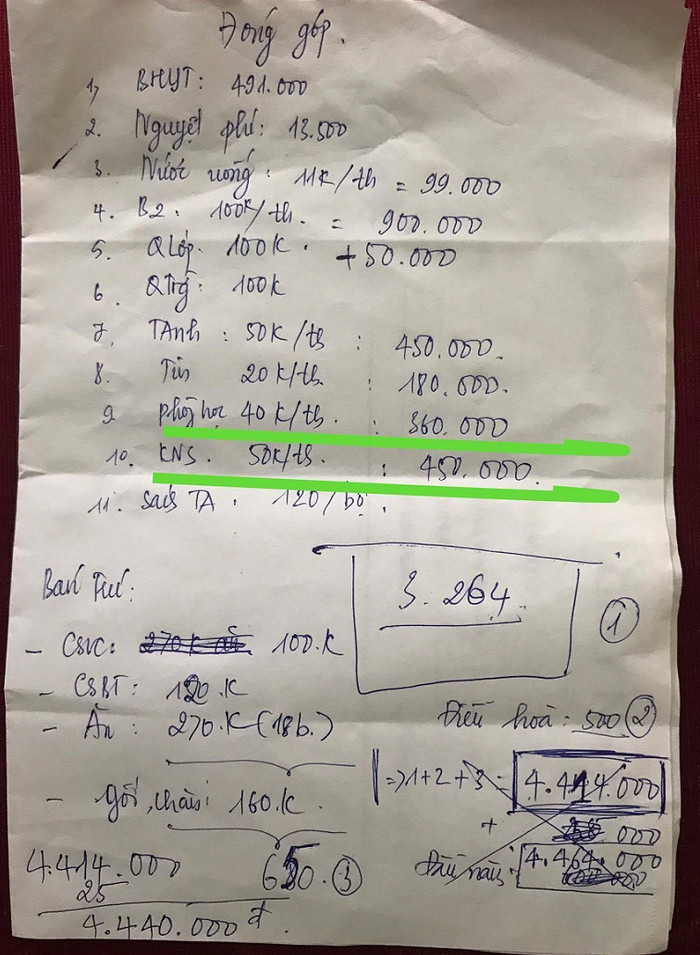 Đóng góp.
1, BHYT: 491.000
2. Nguyệt phí: 13.500
3. Nước uống: 11K/th = 99.000
4. B2. 100K/th. = 900.000
5. QLớp. 100K. +50.000
6. QTrg: 100K
7. TAnh: 50K/th : 450.000.
8. Tin 20K/th. : 180.000.
9. phòng học 40K/th. : 360.000
10. KNS. 50K/th. : 450.000.
11. Sách TA. 120/bộ.
3.264 ①
Bán Trú:
- CSVC: 100.K
- CSBT: 120.K
- Ăn: 270.K (18b.)
Điều hoà: 500 ②
- gối, chăn: 160.K.
650. ③
=> 1+2+3 = 4.414.000
+ 000
4.464.000
4.414.000
25
4.440.000 đ.